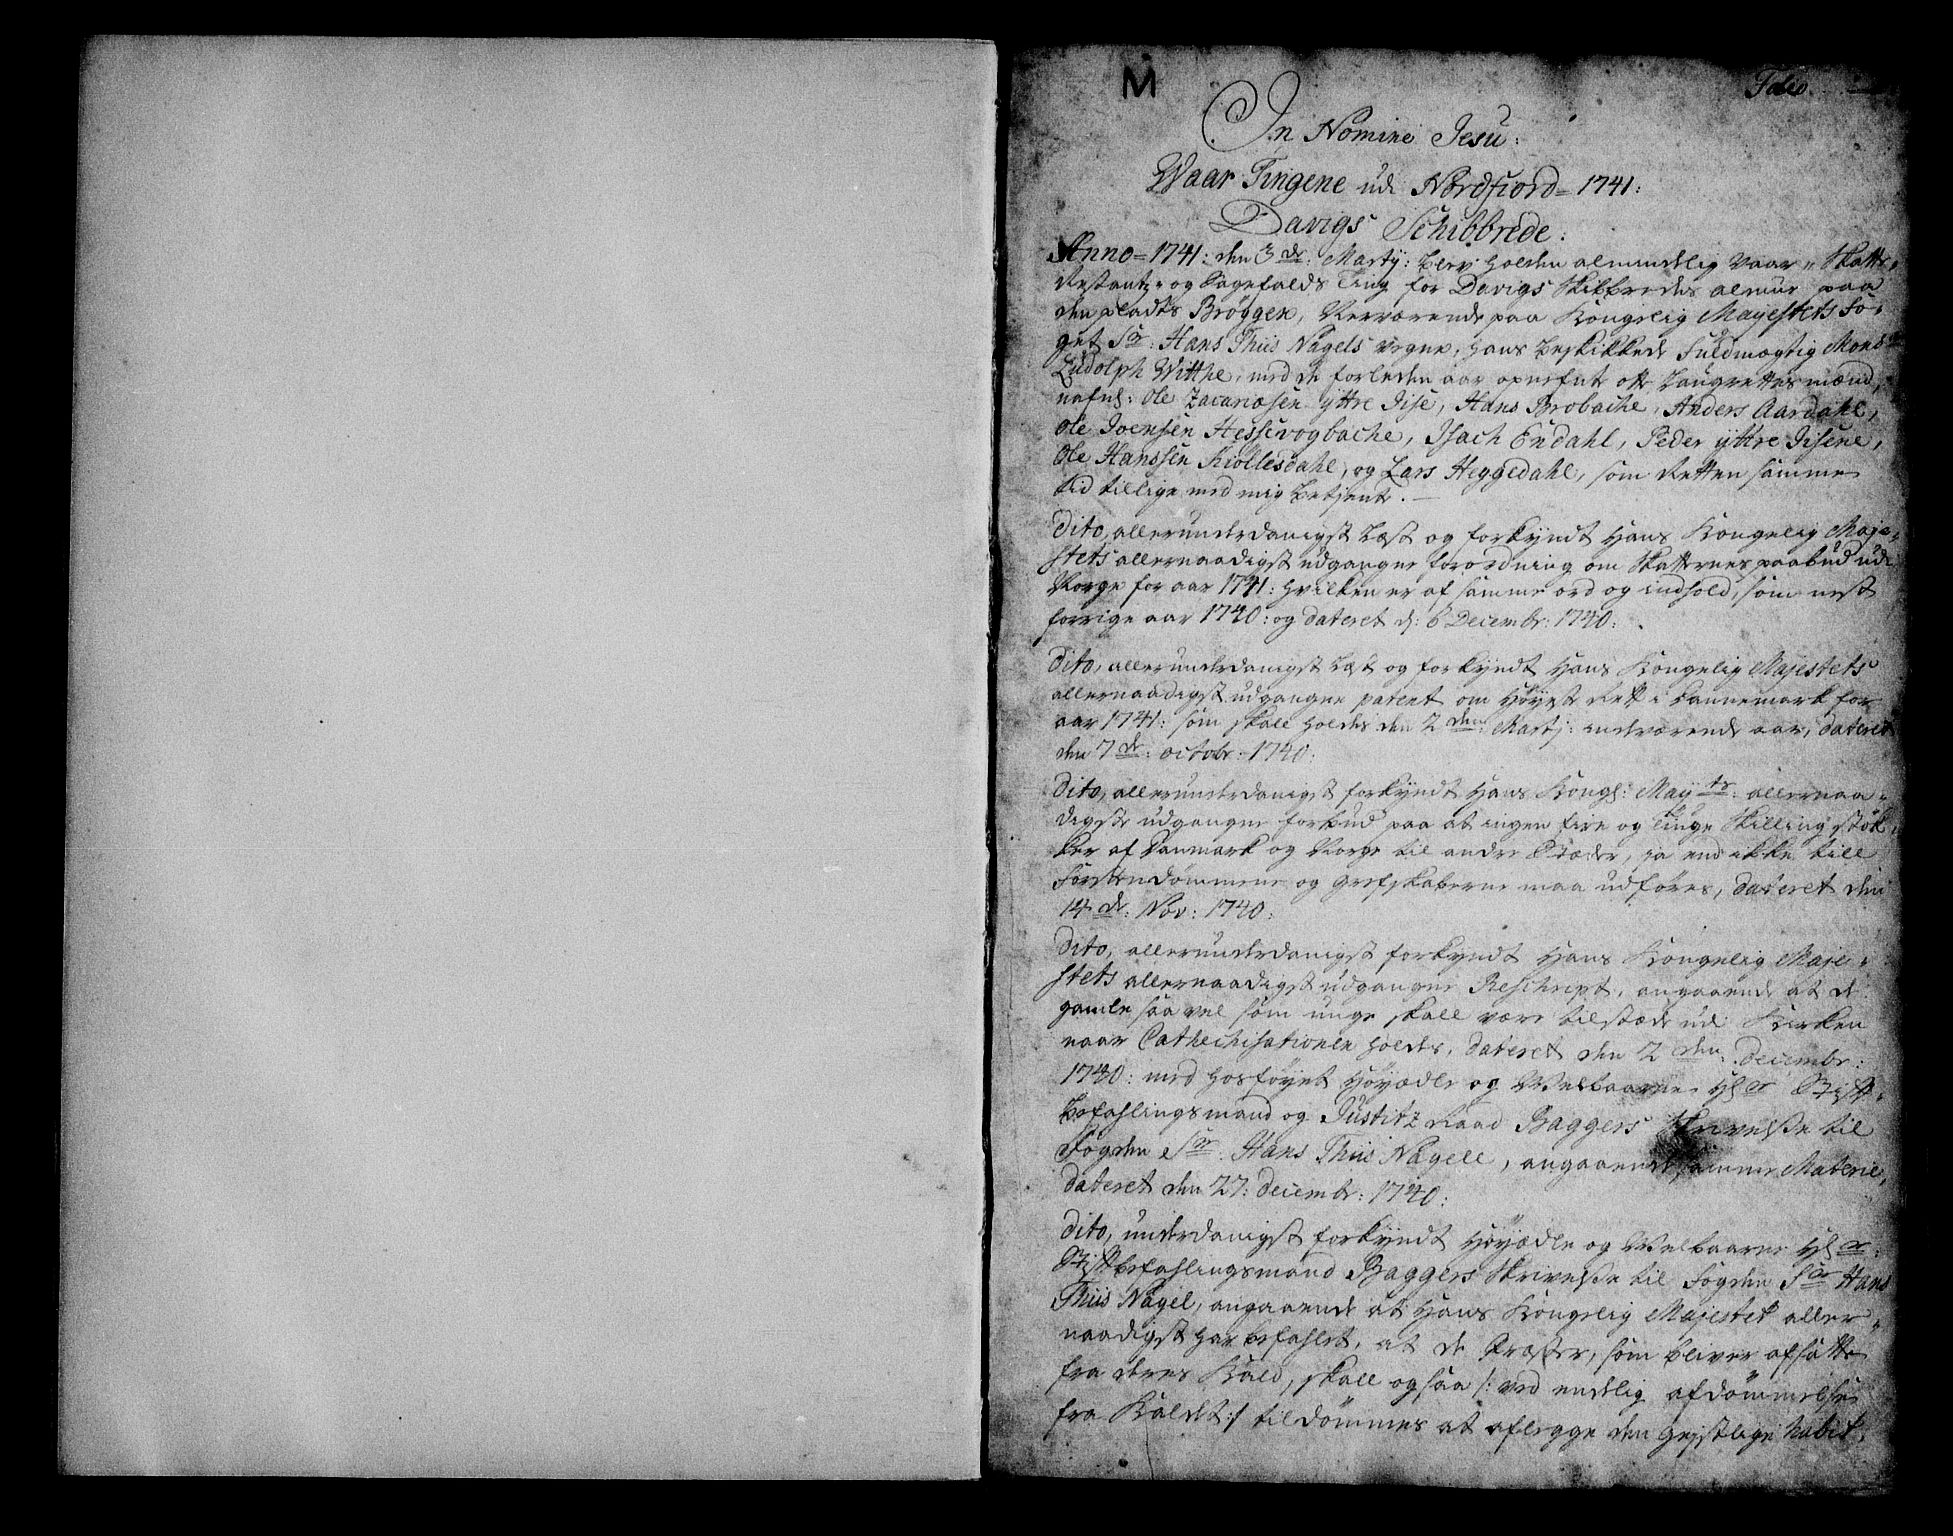 M
Folio
In Nomine Jesu:
Waar Tingene udi Nordfiord = 1741:
Davigs Schibbrede:
Anno = 1741: den 3de: Martij: blev holden almindelig Vaar- Skatte-
Restantz- og Sagefalds Ting for Davigs Skibbredes almue paa
den plads Bryggen, Nerværende paa Kongelig Mayestets Fo-
get Sr: Hans Thiis Nagels vegne, hans beskikkede Fuldmægtig Monsr
Ludolph Witthe, med de forleden aar opnefnte otte Laugrettesmænd,
nafnl: Ole Zacariæsen yttre Iise, Hans Brobache, Anders Aardahl,
Ole Joensen Hessevogbache, Isach Endahl, Peder yttre Iisene,
Ole Hanssen Kiøllesdahl, og Lars Heggedahl, som Retten samme
tid tillige med mig betiente.
Dito, allerunderdanigst Læst og forkyndt Hans Kongelig Maje-
stets allernaadigst udgangne forordning om Skatternes paabud udi
Norge for aar 1741: hvilken er af samme ord og indhold, som nest
forrige aar 1740: og dateret d: 6 Decembr: 1740:
Dito, allerunderdanigst Læst og forkyndt Hans Kongelig Majestets
allernaadigst udgangne patent om Høyeste Rett i Dannemark for
aar 1741: som skall holdes den 2den: Martj: indeværende aar, dateret
den 7de: octobr: 1740:
Dito, allerunderdanigst forkyndt Hans Kongl: Mayts: allernaa-
digste udgangne forbud paa at ingen fire og Tinge Skilling støk-
ker af Danmark og Norge til andre Stæder, ja end ikke till
Førstendømmene og grefskaberne maa udføres, dateret den
14de: Nov: 1740:
Dito, allerunderdanigst forkyndt Hans Kongelig Maje-
stets allernaadigst udgangne Reschript, angaaende at de
gamle saa vel som unge skall være tilstæde udi Kirken
naar Cathechisationen holdes, dateret den 2den: Decembr:
1740: med hosføyet Høyædle og Velbaarne Hr Stift-
befahlingsmand og Justitz Raad Baggers Skrivelse til
Fogden Sr. Hans Thiis Nagell, angaaende samme Materie,
dateret den 27: decembr: 1740:
Dito, underdanigst forkyndt Høyædle og Velbaarne Hr:
Stiftbefahlingsmand Baggers Skrivelse til Fogden Sr Hans
Thiis Nagel, angaaende at Hans Kongelig Majestet aller-
naadigst har befahlet, at de Præster, som bliver afsatte
fra deres Kald, skall ogsaa /: ved endelig afdømmelse
fra Kaldet :/ tildømmes at aflegge den Gejstlige habit,